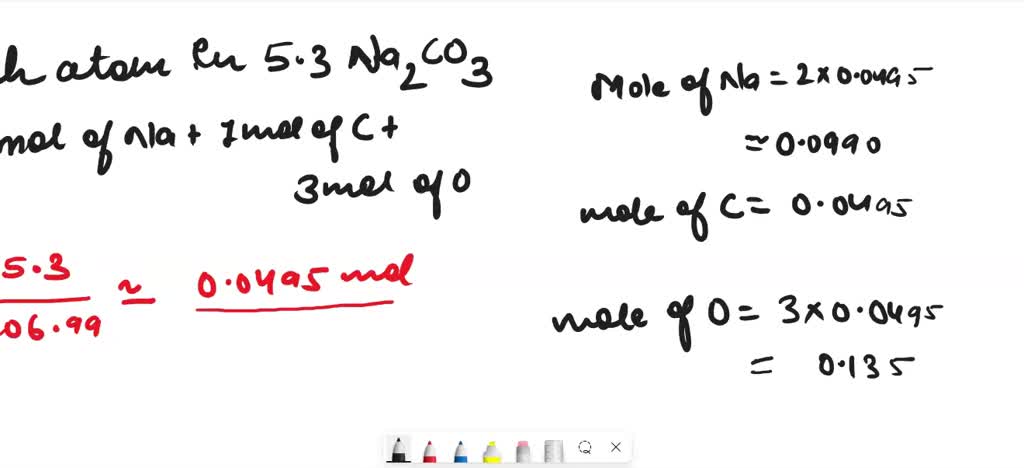 h atom in 5.3 Na₂CO₃
mol of Na + 1 mol of C +
3 mol of O
5.3
06.99
≈ 0.0495 mol
Mole of Na = 2 × 0.0495
≈ 0.0990
mole of C = 0.0495
mole of O = 3 × 0.0495
= 0.135